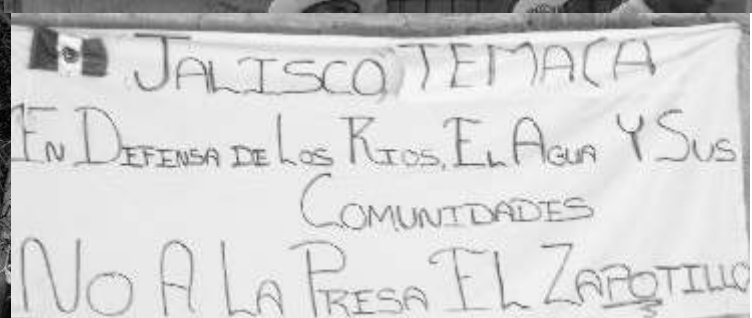 JALISCO TEMACA
EN DEFENSA DE LOS RIOS, EL AGUA Y SUS
COMUNIDADES
NO A LA PRESA EL ZAPOTILLO